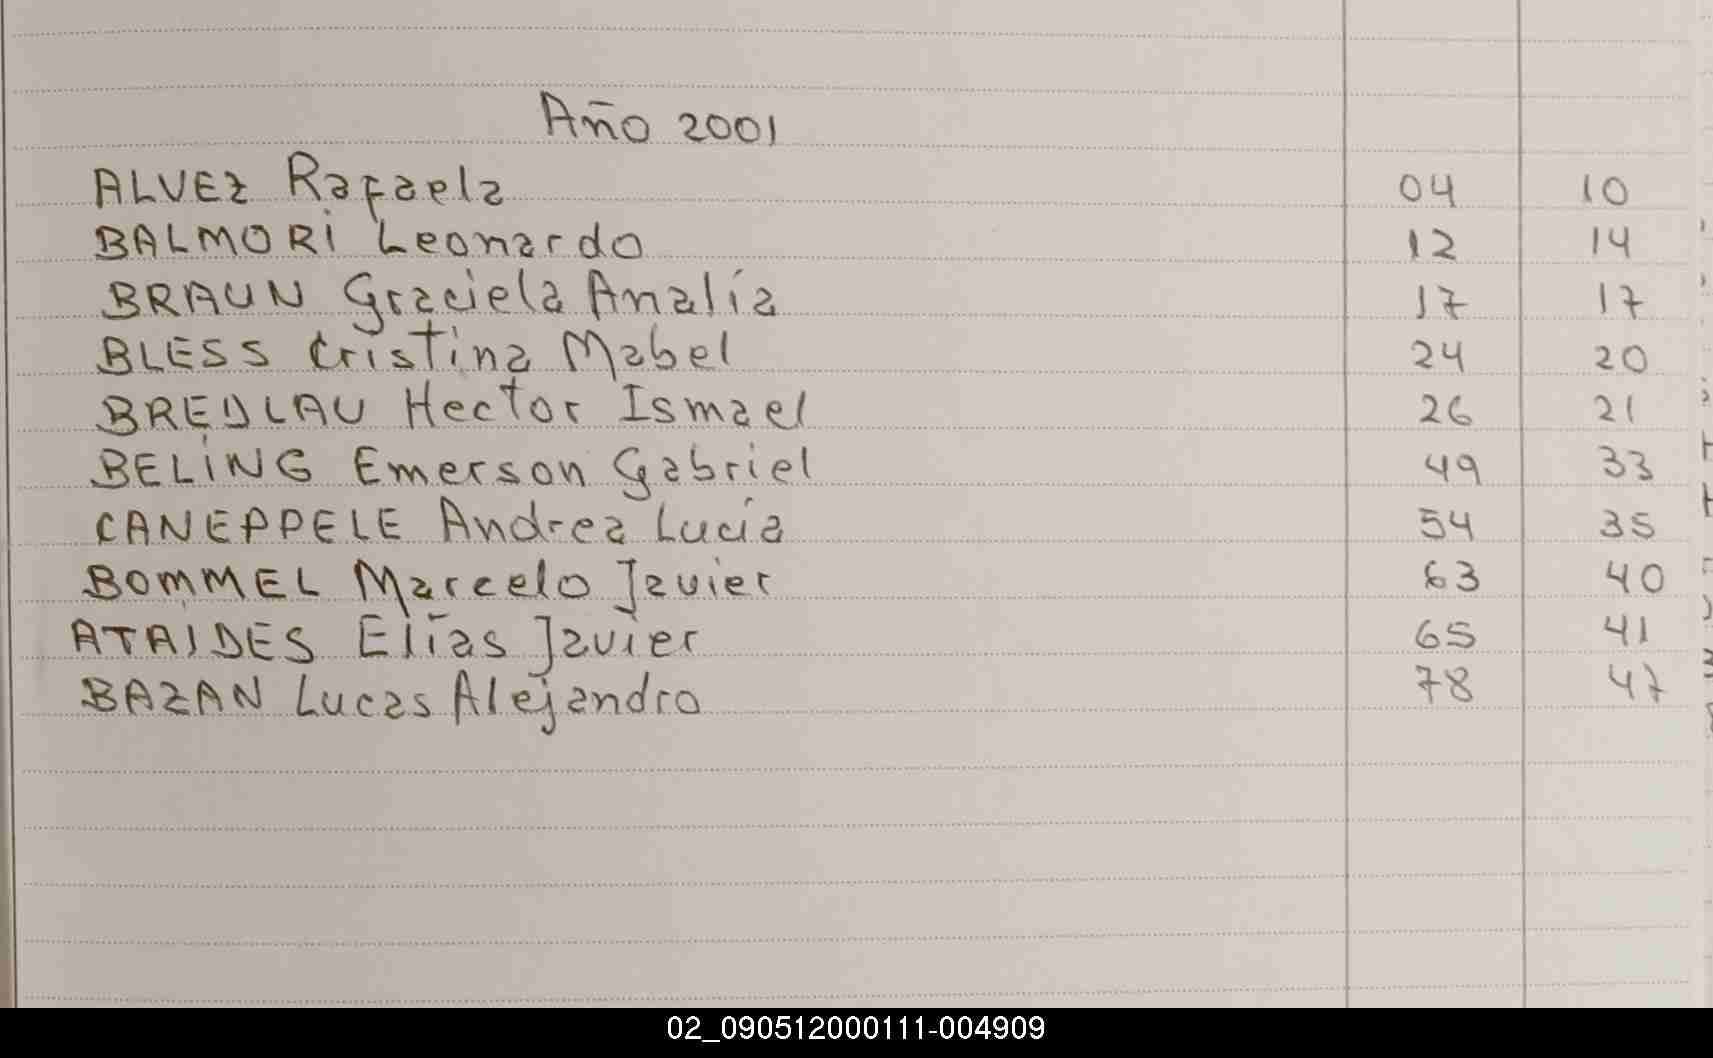 Año 2001
ALVEZ Rafaela 04 10
BALMORI Leonardo 12 14
BRAUN Graciela Analía 17 17
BLESS Cristina Mabel 24 20
Hector Ismael 26 21
BELING Emerson Gabriel 49 33
CANEPPELE Andrea Lucía 54 35
BOMMEL Marcelo Javier 63 40
ATAIDES Elías Javier 65 41
BAZAN Lucas Alejandro 78 47
02_090512000111-004909